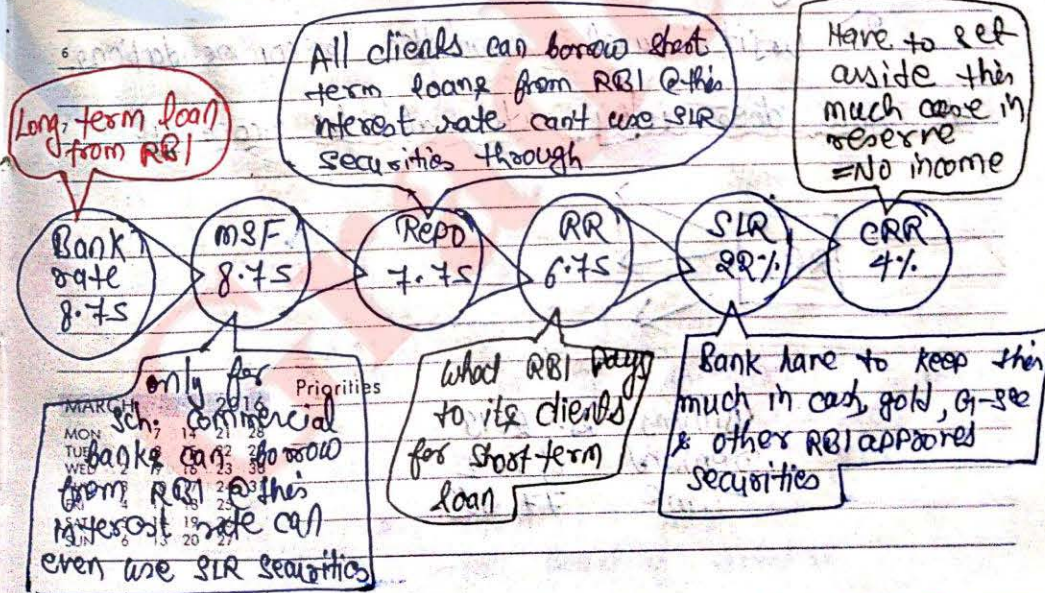 6
Long term loan
from RBI
All clients can borrow short
term loans from RBI @ this
interest rate can't use SLR
securities through
Have to set
asside this
much case in
reserve
=No income
Bank
rate
8.75
MSF
8.75
Repo
7.75
RR
6.75
SLR
22%
CRR
4%
only for
Sch. Commercial
banks can borrow
from RBI @ this
interost rate can
even use SLR securities
Priorities
MARCH 2016
MON 7 14 21 28
what RBI Pays
to its clients
for short term
loan
Bank hare to keep this
much in cash, gold, G-sec
& other RBI approves
securities